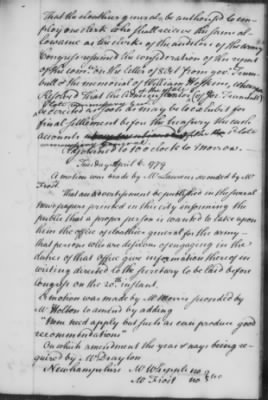 That the cloathier general be authorised to em-
ploy one clerk who shall receive the same al-
lowance as the clerks of the auditors of the army
Congress resumed the consideration of the report
of the comee. on the letter of 8 Oct from gov. Trum-
bull & the memorial of William Hoskins, whereupon
Resolved That the
accounts
Adjourned to 10 o'clock to Morrow.
Tuesday April 6. 1779
A motion was made by Mr Laurens seconded by Mr
Frost
That an advertisement be published in the several
newspapers printed in this city informing the
public that a proper person is wanted to take upon
him the office of cloathier general for the army—
that persons who are desirous of engaging in the
duties of that office give information thereof in
writing directed to the secretary to be laid before
Congress on the 20th instant.
A motion was made by Mr Morris seconded by
Mr Holton to amend by adding
"None need apply but such as can produce good
recommendations"
On which amendment the yeas & nays being re-
quired by Mr Drayton
Newhampshire Mr Whipple no
Mr Frost no } no